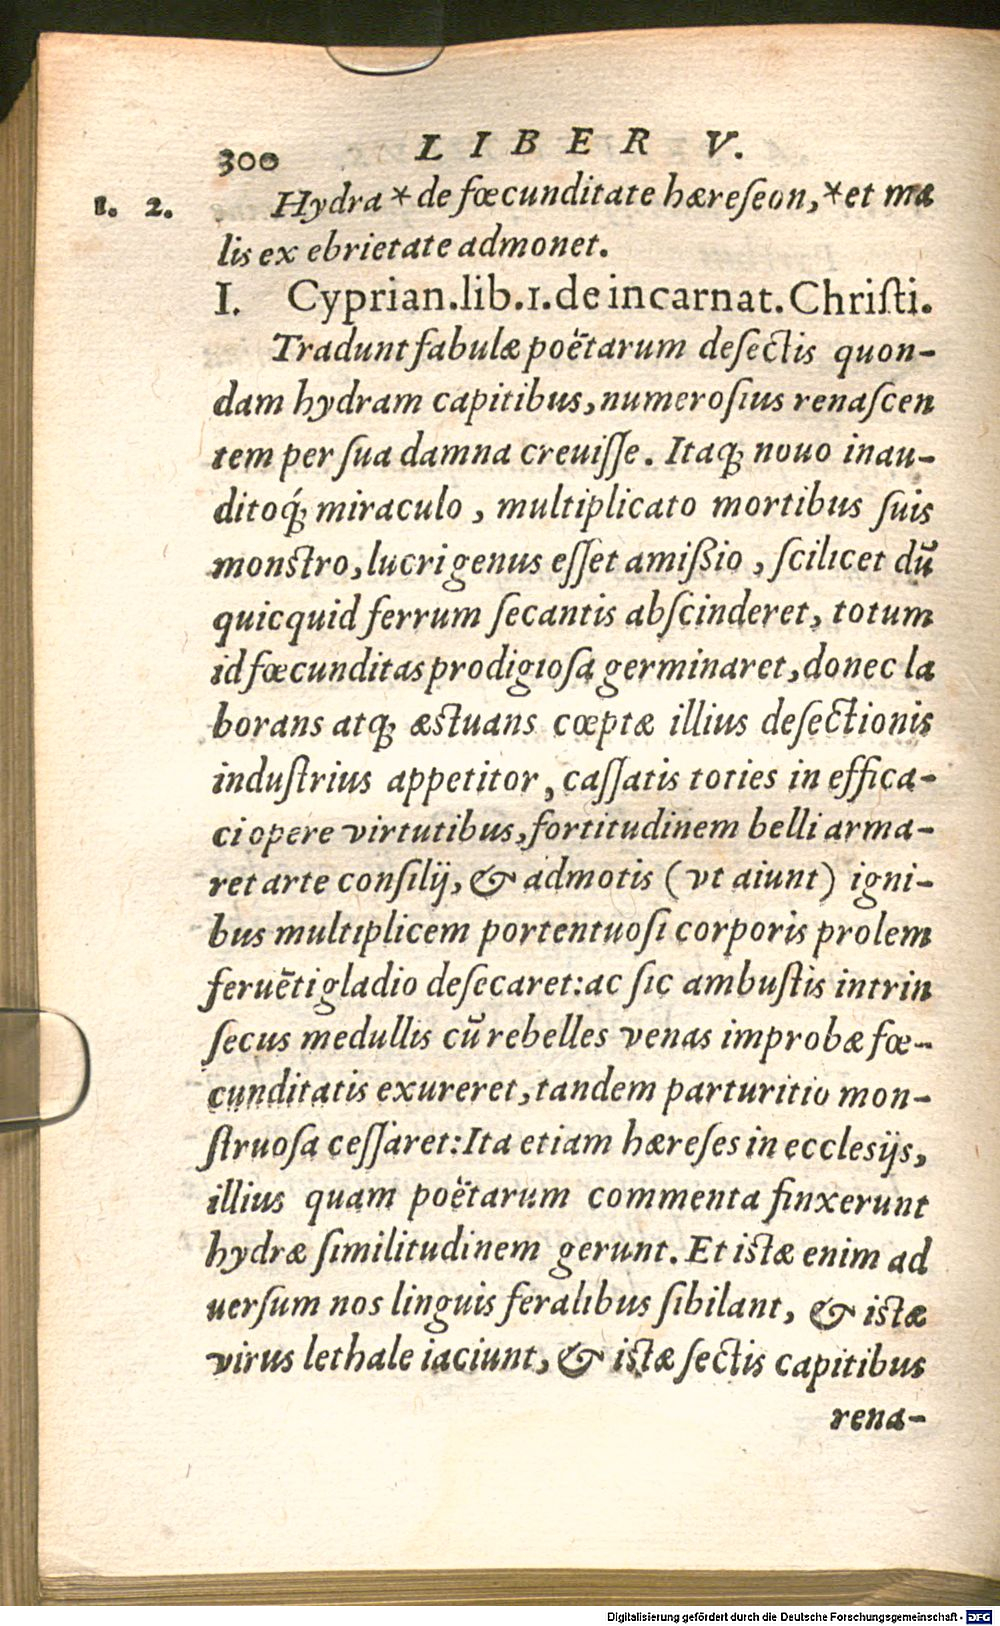 300 LIBER V.
1. 2. Hydra * de fœcunditate hæreſeon, * et ma
lis ex ebrietate admonet.
I. Cyprian. lib. 1. de incarnat. Chriſti.
Tradunt fabulæ poëtarum deſectis quon-
dam hydram capitibus, numeroſius renaſcen
tem per ſua damna creuiſſe. Itaq́ꝫ nouo inau-
ditoq́ꝫ miraculo, multiplicato mortibus ſuis
monſtro, lucri genus eſſet amißio, ſcilicet dũ
quicquid ferrum ſecantis abſcinderet, totum
id fœcunditas prodigioſa germinaret, donec la
borans atqꝫ æſtuans cœptæ illius deſectionis
induſtrius appetitor, caſſatis toties in effica-
ci opere virtutibus, fortitudinem belli arma-
ret arte conſilij, & admotis (vt aiunt) igni-
bus multiplicem portentuoſi corporis prolem
feruẽti gladio deſecaret: ac ſic ambuſtis intrin
ſecus medullis cũ rebelles venas improbæ fœ-
cunditatis exureret, tandem parturitio mon-
ſtruoſa ceſſaret: Ita etiam hæreſes in eccleſijs,
illius quam poëtarum commenta finxerunt
hydræ ſimilitudinem gerunt. Et iſtæ enim ad
uerſum nos linguis feralibus ſibilant, & iſtæ
virus lethale iaciunt, & iſtæ ſectis capitibus
rena-
Digitalisierung gefördert durch die Deutsche Forschungsgemeinschaft - DFG